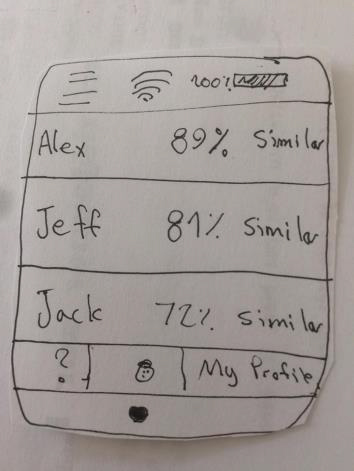 100%
Alex 89% Similar
Jeff 81% Similar
Jack 72% Similar
? My Profile